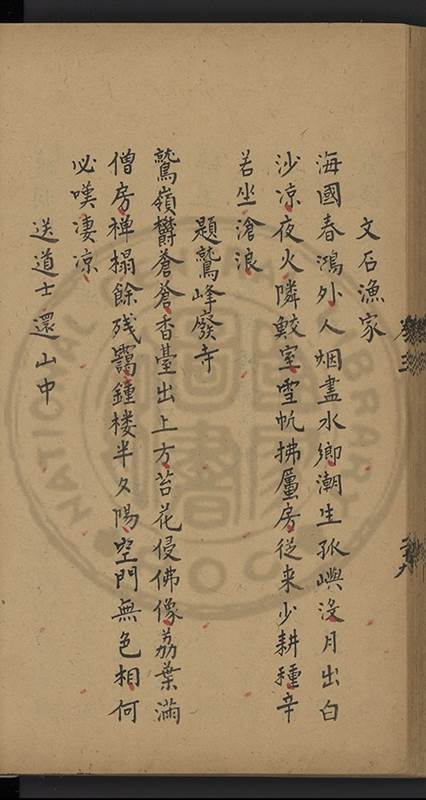 文石漁家
海國春鴻外人烟盡水鄉潮生孤嶼没月出白
沙凉夜火隣鮫室雪帆拂蜃房從来少耕種辛
若坐滄浪
題鷲峰廢寺
鷲嶺欝蒼蒼香臺出上方苔花侵佛像荔葉滿
僧房禅榻餘残靄鍾楼半夕陽空門無色相何
必嘆凄凉
送道士還山中